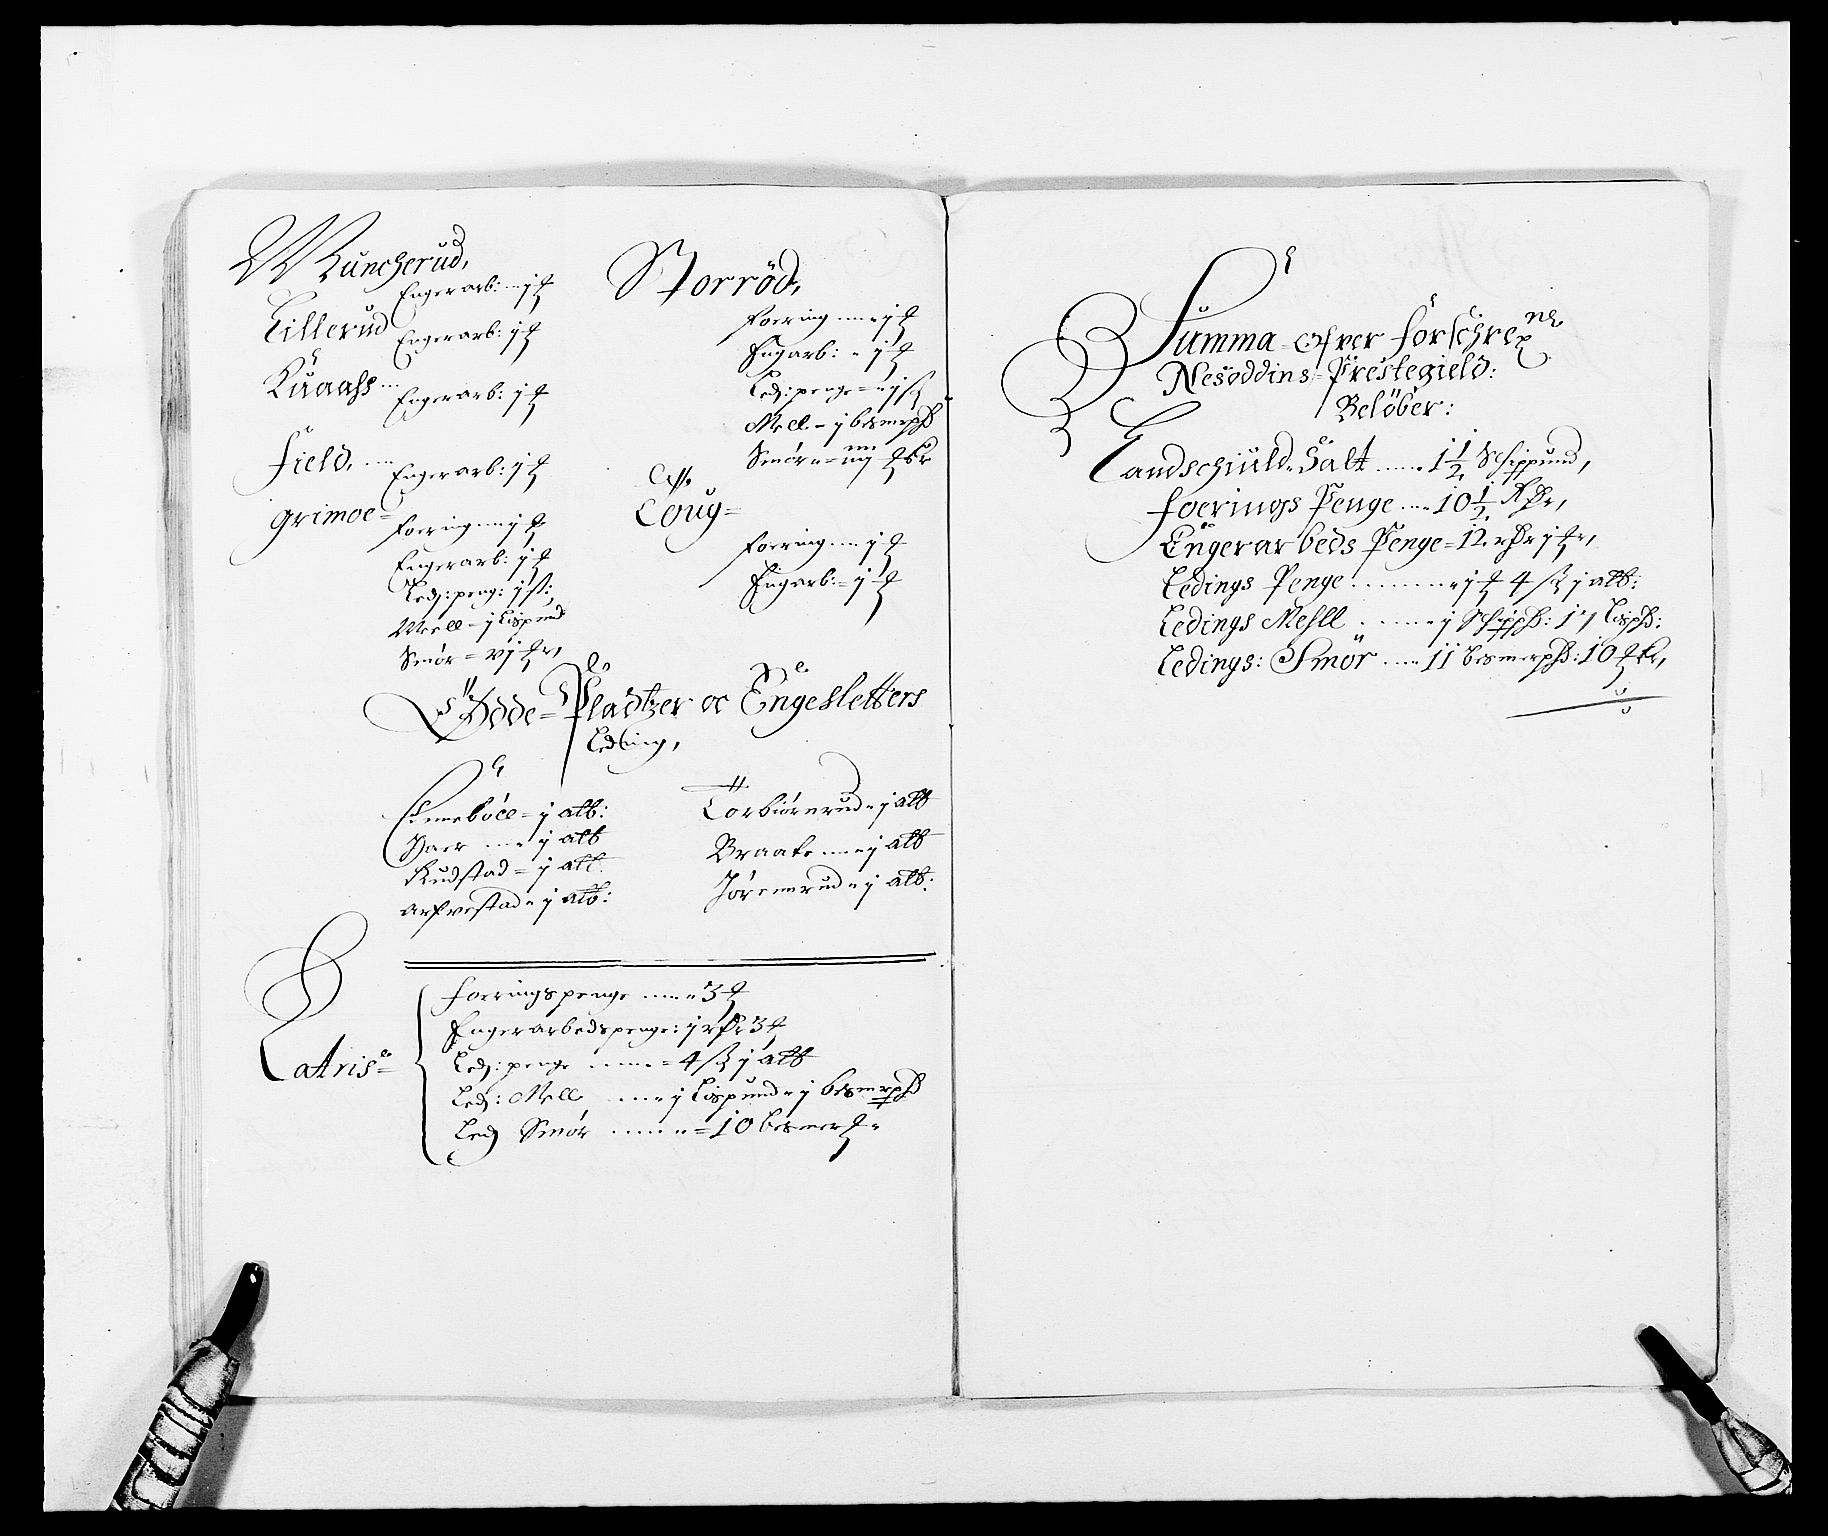 Muncherud,
Engerarb: j
Lillerud
Engerarb: j
Kuaahs
Engerarb: j
Field,
Engerarb: j
Grimoe=
Foering j
Engerarb: j
Led: peng: j
Meell = j Lispund
Smör = vj
Storröd,
Foering j
Engarb: j
Led: penge = j
Meell = j besmerpd
Smör =
Foug=
Foering j
Engarb: = j
Öde= Pladtzer oc Engesletters
Leding,
Linneböle = j alb:
Haer j alb
Rudstad = j alb.
Arfvestad = j alb:
Torbiörnrud = j alb
Braate j alb
Jörenrud = j alb:
Latris=
Foeringspenge 3
Engerarbedspenge: j rdr 3
Led: penge = 4 ß j alb
Led: Meell j Lispund = j besmerpd
Led Smör = 10 besmer
Summa Ofver forschrefne
Nesoddins Prestegield:
Belöber:
Landschiuld Salt 1 1/2 Schippund,
Foerings Penge 10 1/2 Rdr,
Engerarbeds Penge = 12 rdr j
Ledings Penge j 4 ß j alb:
Ledings Mehll j Schippd: 17 Lispd:
Ledings: Smör 11 besmerpd: 10